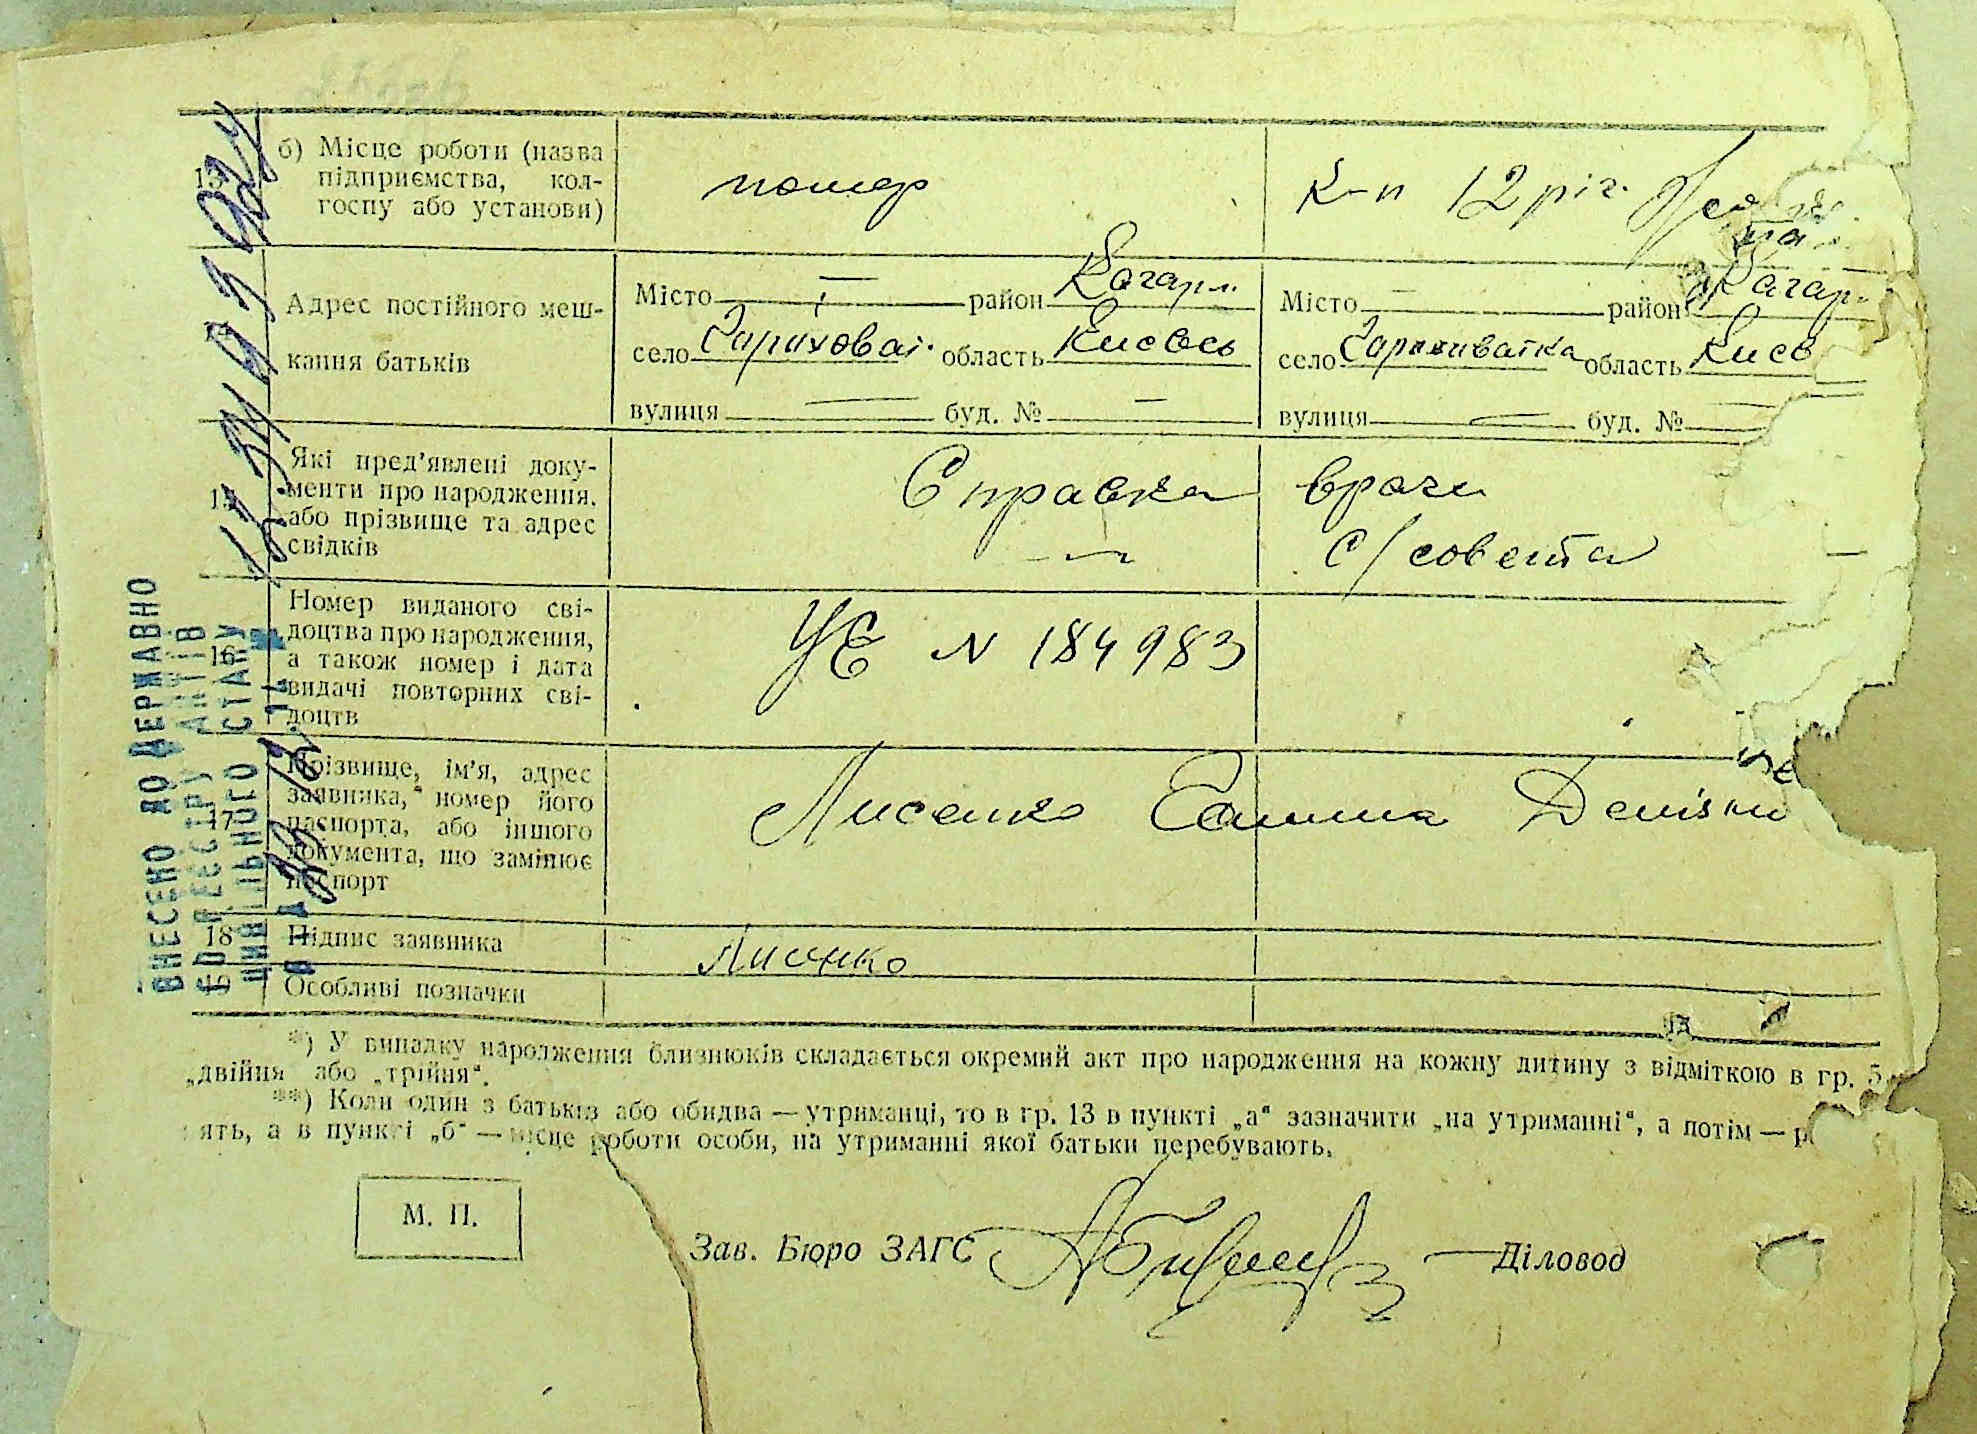 13 б) Місце роботи (назва підприємства, кол-
госпу або установи)
помер
К-п 12 річ.
Адрес постійного меш-
кання батьків
Місто — район Кагарл.
село Гороховат. область Києвсь
вулиця — буд. № —
Місто — район Кагар.
село Гороховатка область Києв
вулиця — буд. №
15 Які пред'явлені доку-
менти про народження,
або прізвище та адрес
свідків
Справка врачи
— с/совета
16 Номер виданого сві-
доцтва про народження,
а також номер і дата
видачі повторних сві-
доцтв
УЄ N 184983
17 Прізвище, ім'я, адрес
заявника, номер його
паспорта, або іншого
документа, що замінює
паспорт
Лисенко Ганна Денісівн
18 Підпис заявника
Лисенко
Особливі позначки
*) У випадку народження близнюків складається окремий акт про народження на кожну дитину з відміткою в гр. 5
„двійня" або „трійня".
**) Коли один з батьків або обидва — утриманці, то в гр. 13 в пункті „а" зазначити „на утриманні", а потім —
ять, а в пункті „б" — місце роботи особи, на утриманні якої батьки перебувають.
М. П.
Зав. Бюро ЗАГС
Діловод
ВНЕСЕНО ДО ДЕРЖАВНО
ГО РЕЄСТРУ АКТІВ
ЦИВІЛЬНОГО СТАНУ